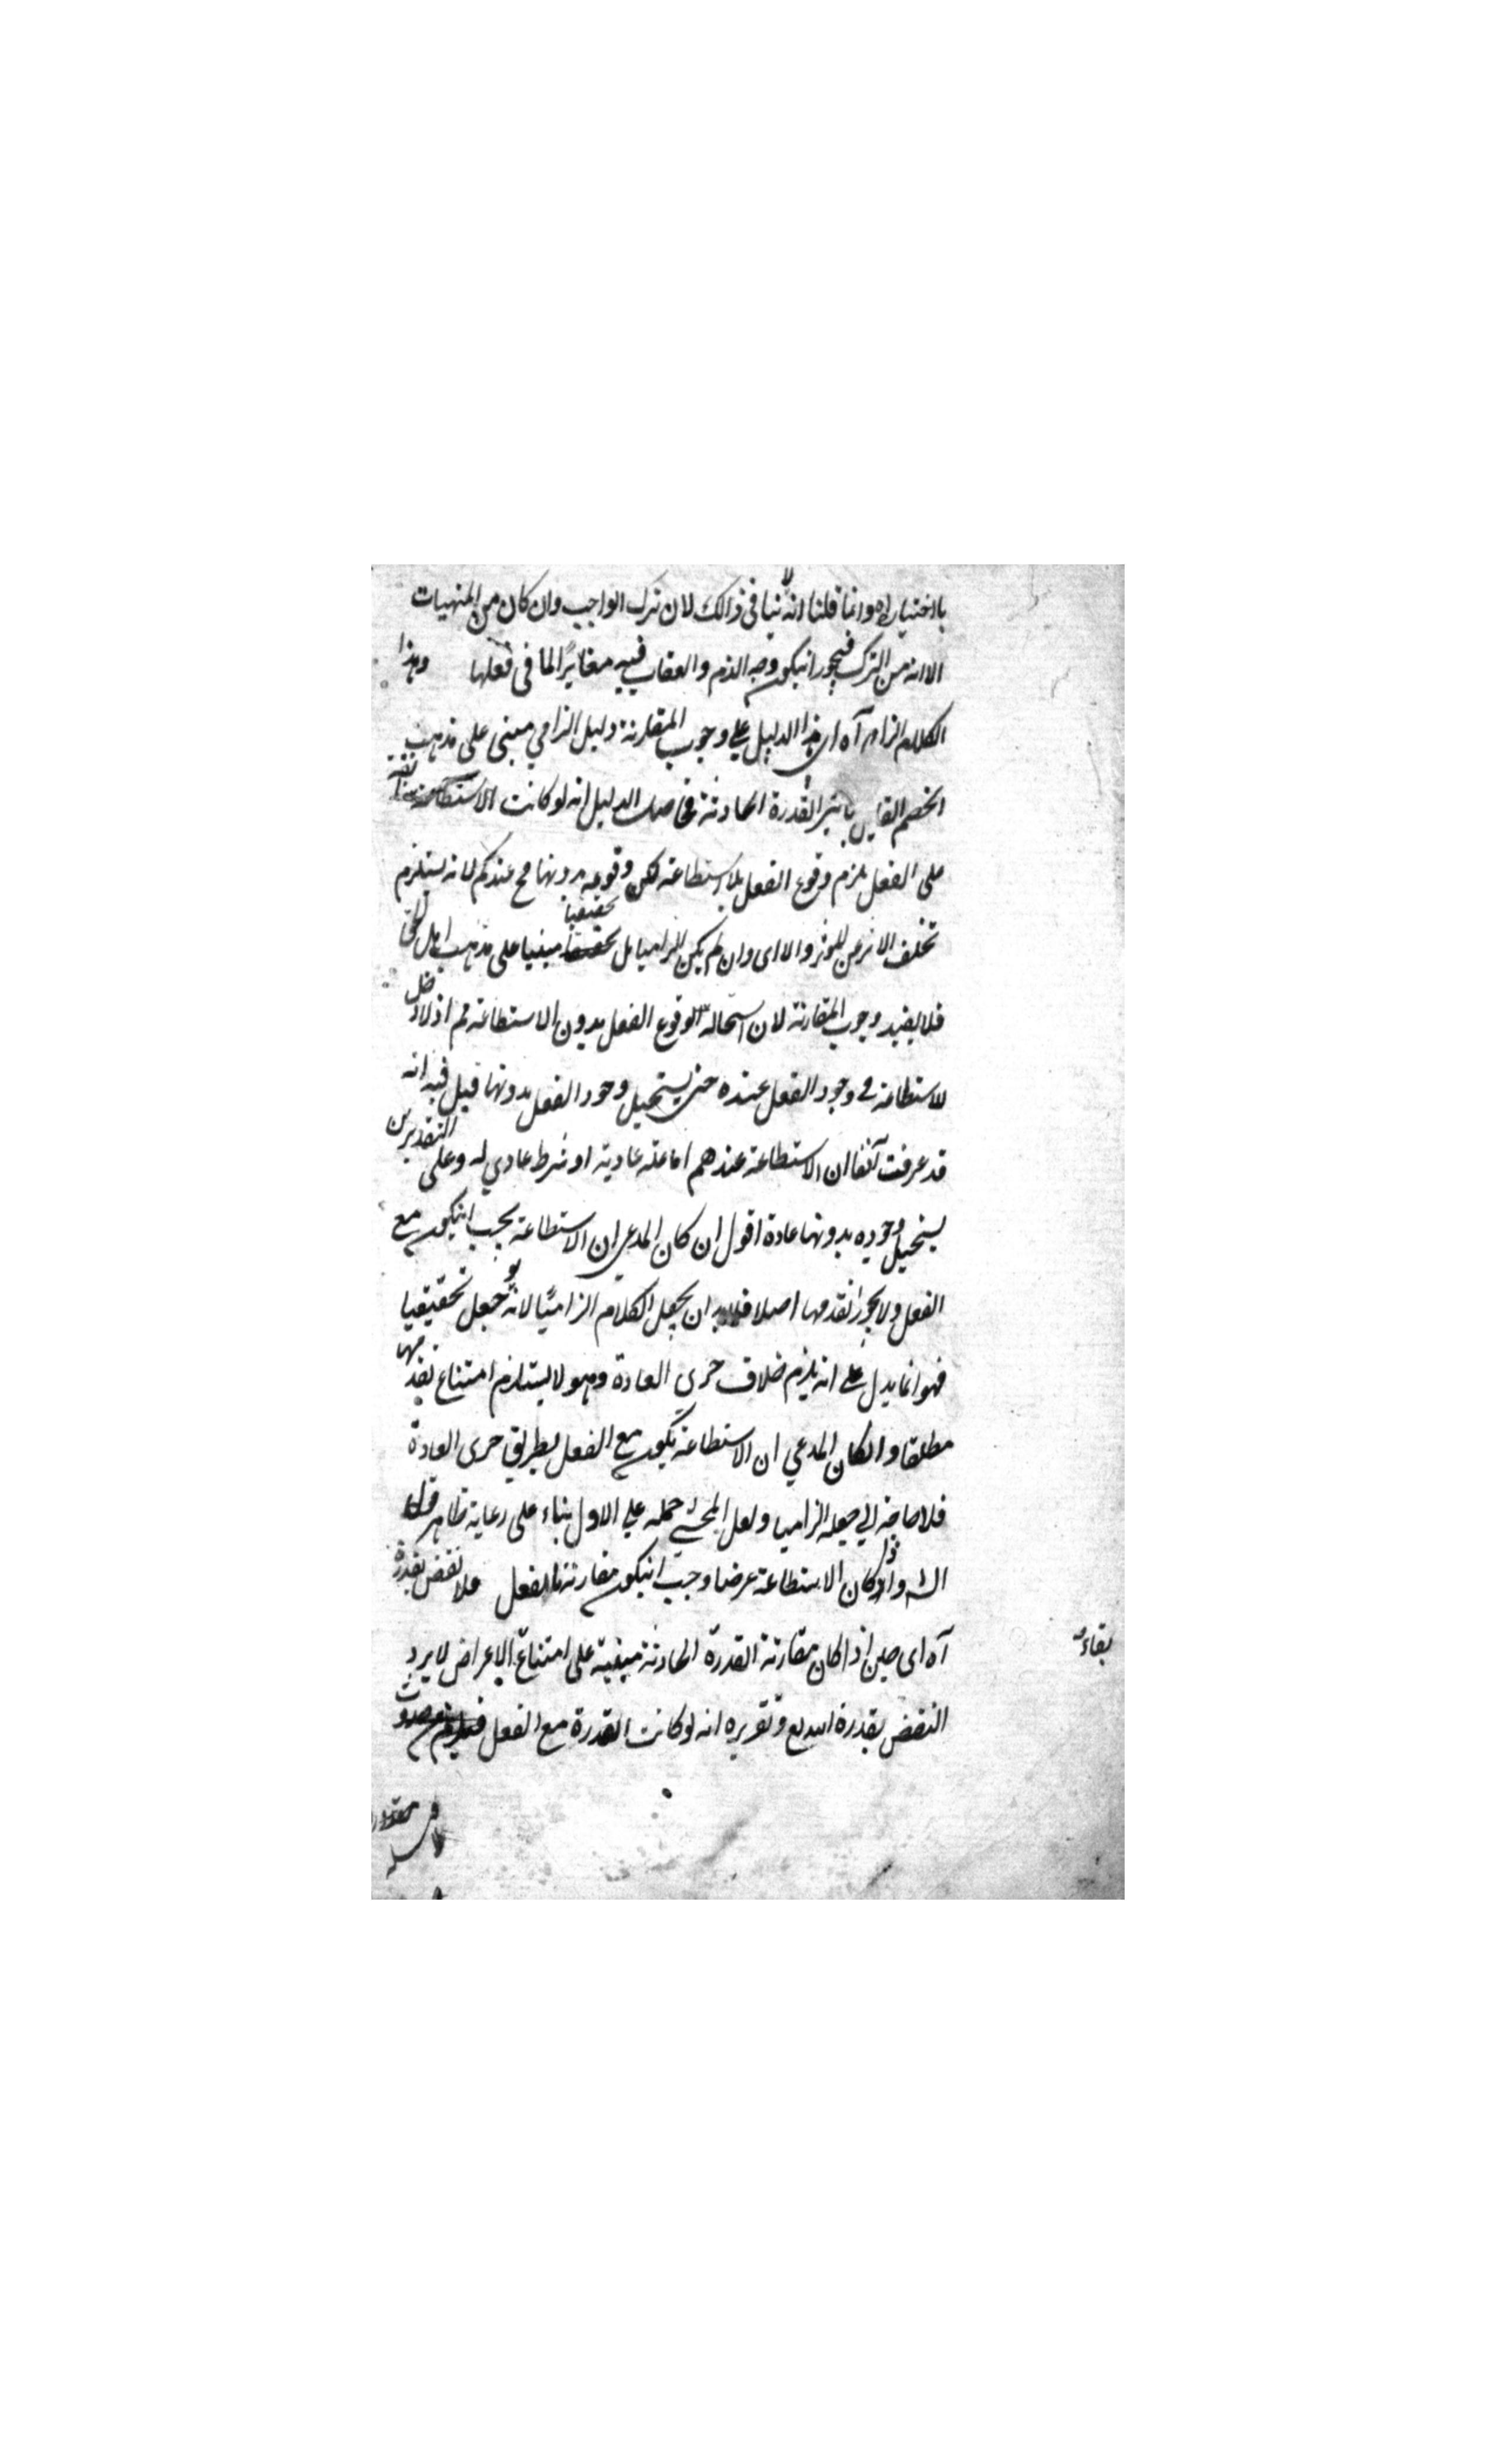 باختياره وانما قلنا انه لا ينافي ذالك لان ترك الواجب وان كان من المنهيات
الا انه من الترك فيجوز انيكون وجه الذم والعقاب فيه مغايرًا لما في فعلها وهذا
الكلام الزام آه اى هذا الدليل على وجوب المقارنة دليل الزامي مبنى على مذهب
الخصم القايل بتاثير القدرة الحادثة فحاصل الدليل انه لو كانت الاستطاعة سابقة
على الفعل يلزم وقوع الفعل بلا استطاعة لكن وقوعه بدونها مح عندكم لانه يستلزم
تخلف الاثر عن المؤثر والا اى وان لم يكن الزاميا بل تحقيقيا مبنيا على مذهب اهل الحق
فلا يفيد وجوب المقارنة لان استحالة وقوع الفعل بدون الاستطاعة مم اذ لا دخل
للاستطاعة في وجود الفعل عنده حتى يستحيل وجود الفعل بدونها قيل فيه انه
قد عرفت آنفا ان الاستطاعة عندهم اما علة عادية او شرط عادي له وعلى التقديرين
يستحيل وجوده بدونها عادة اقول ان كان المدعى ان الاستطاعة يجب انيكون مع
الفعل ولا يجوز تقدمها اصلا فلابد ان يجعل الكلام الزاميًا لانه لو جعل تحقيقيا
فهو انما يدل على انه يلزم خلاف جرى العادة وهو لا يستلزم امتناع تقدمها
مطلقا وانكان المدعي ان الاستطاعة يكون مع الفعل بطريق جرى العادة
فلا حاجة الي جعله الزاميا ولعل المحشي حمله على الاول بناء على رعاية ظاهر قول
الش واذا كان الاستطاعة عرضا وجب انيكون مقارنة للفعل فلا نقض بقدرة
آه اى حين اذا كان مقارنة القدرة الحادثة مبنية على امتناع الاعراض لا يرد
بقاء
النقض بقدرة الله تع وتقريره انه لو كانت القدرة مع الفعل حدوث